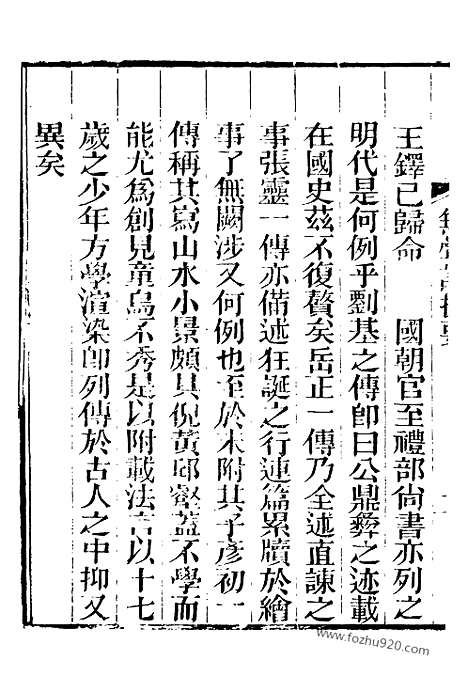 王鐸已歸命　國朝官至禮部尚書亦列之
明代是何例乎劉基之傳卽曰公鼎彝之迹載
在國史茲不復贅矣岳正一傳乃全述直諫之
事張靈一傳亦備述狂誕之行連篇累牘於繪
事了無關涉又何例也至於末附其子彥初一
傳稱其寫山水小景頗具倪黃邱壑蓋不學而
能尤爲創見童烏不秀是以附載法言以十七
歲之少年方學渲染卽列傳於古人之中抑又
異矣
www.fozhu920.com